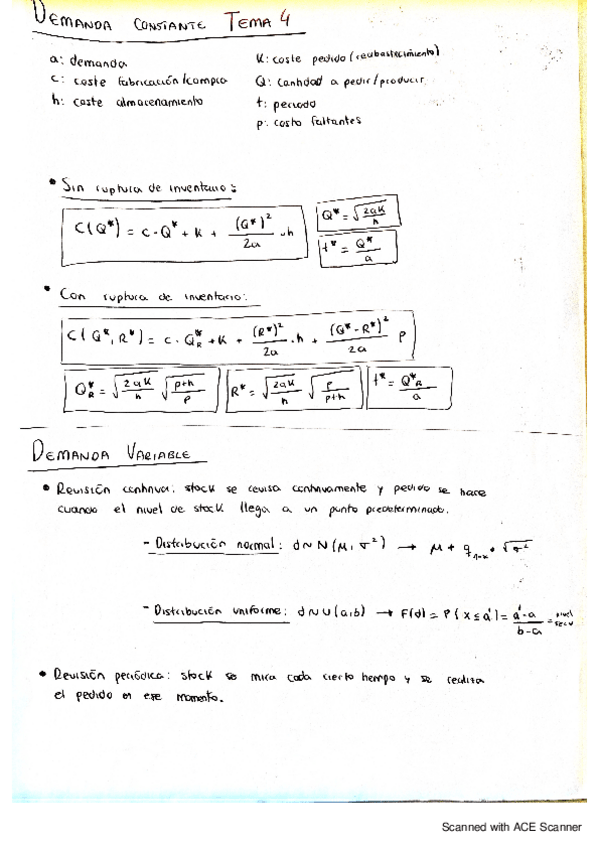 DEMANDA CONSTANTE TEMA 4
a: demanda
c: coste fabricación/compra
h: coste almacenamiento
K: coste pedido (reabastecimiento)
Q: cantidad a pedir/producir
t: periodo
p: costo faltantes
• Sin ruptura de inventario:
C(Q*) = c·Q* + K + (Q*)²/2a · h
Q* = √(2aK/h)
t* = Q*/a
• Con ruptura de inventario:
C(Q*, R*) = c · Q*_R + K + (R*)²/2a · h + (Q* - R*)²/2a p
Q*_R = √(2aK/h) √(p+h/p)
R* = √(2aK/h) √(p/p+h)
t* = Q*_R/a
DEMANDA VARIABLE
• Revisión continua: stock se revisa continuamente y pedido se hace
cuando el nivel de stock llega a un punto predeterminado.
- Distribución normal: d~N(μ, σ²) → μ + q_{1-α} · √σ²
- Distribución uniforme: d~U(a,b) → F(d) = P{x ≤ d'} = d'-a/b-a = nivel
• Revisión periódica: stock se mira cada cierto tiempo y se realiza
el pedido en ese momento.
Scanned with ACE Scanner